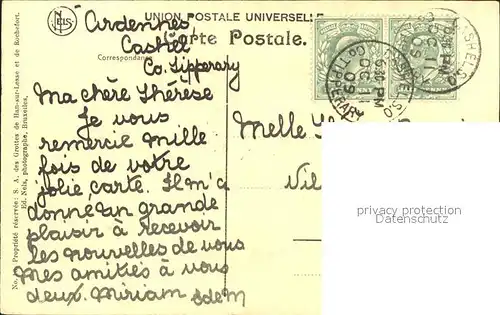 NELS
UNION POSTALE UNIVERSELLE
Carte Postale.
Correspondance
Ardennes
Cashel
Co. Tipperary
Ma chère Thérèse
Je vous
remercie mille
fois de votre
jolie carte. Il m'a
donné un grande
plaisir à recevoir
les nouvelles de vous
Mes amitiés à vous
deux. Miriam
Melle
Vil
CASHEL S.O
Co. TIPPERARY
6 30 PM
OC 11
09
CASHEL S.O
privacy protection
Datenschutz
Propriété réservée: S. A. des Grottes de Han-sur-Lesse et de Rochefort.
Ed. Nels, photographe, Bruxelles.